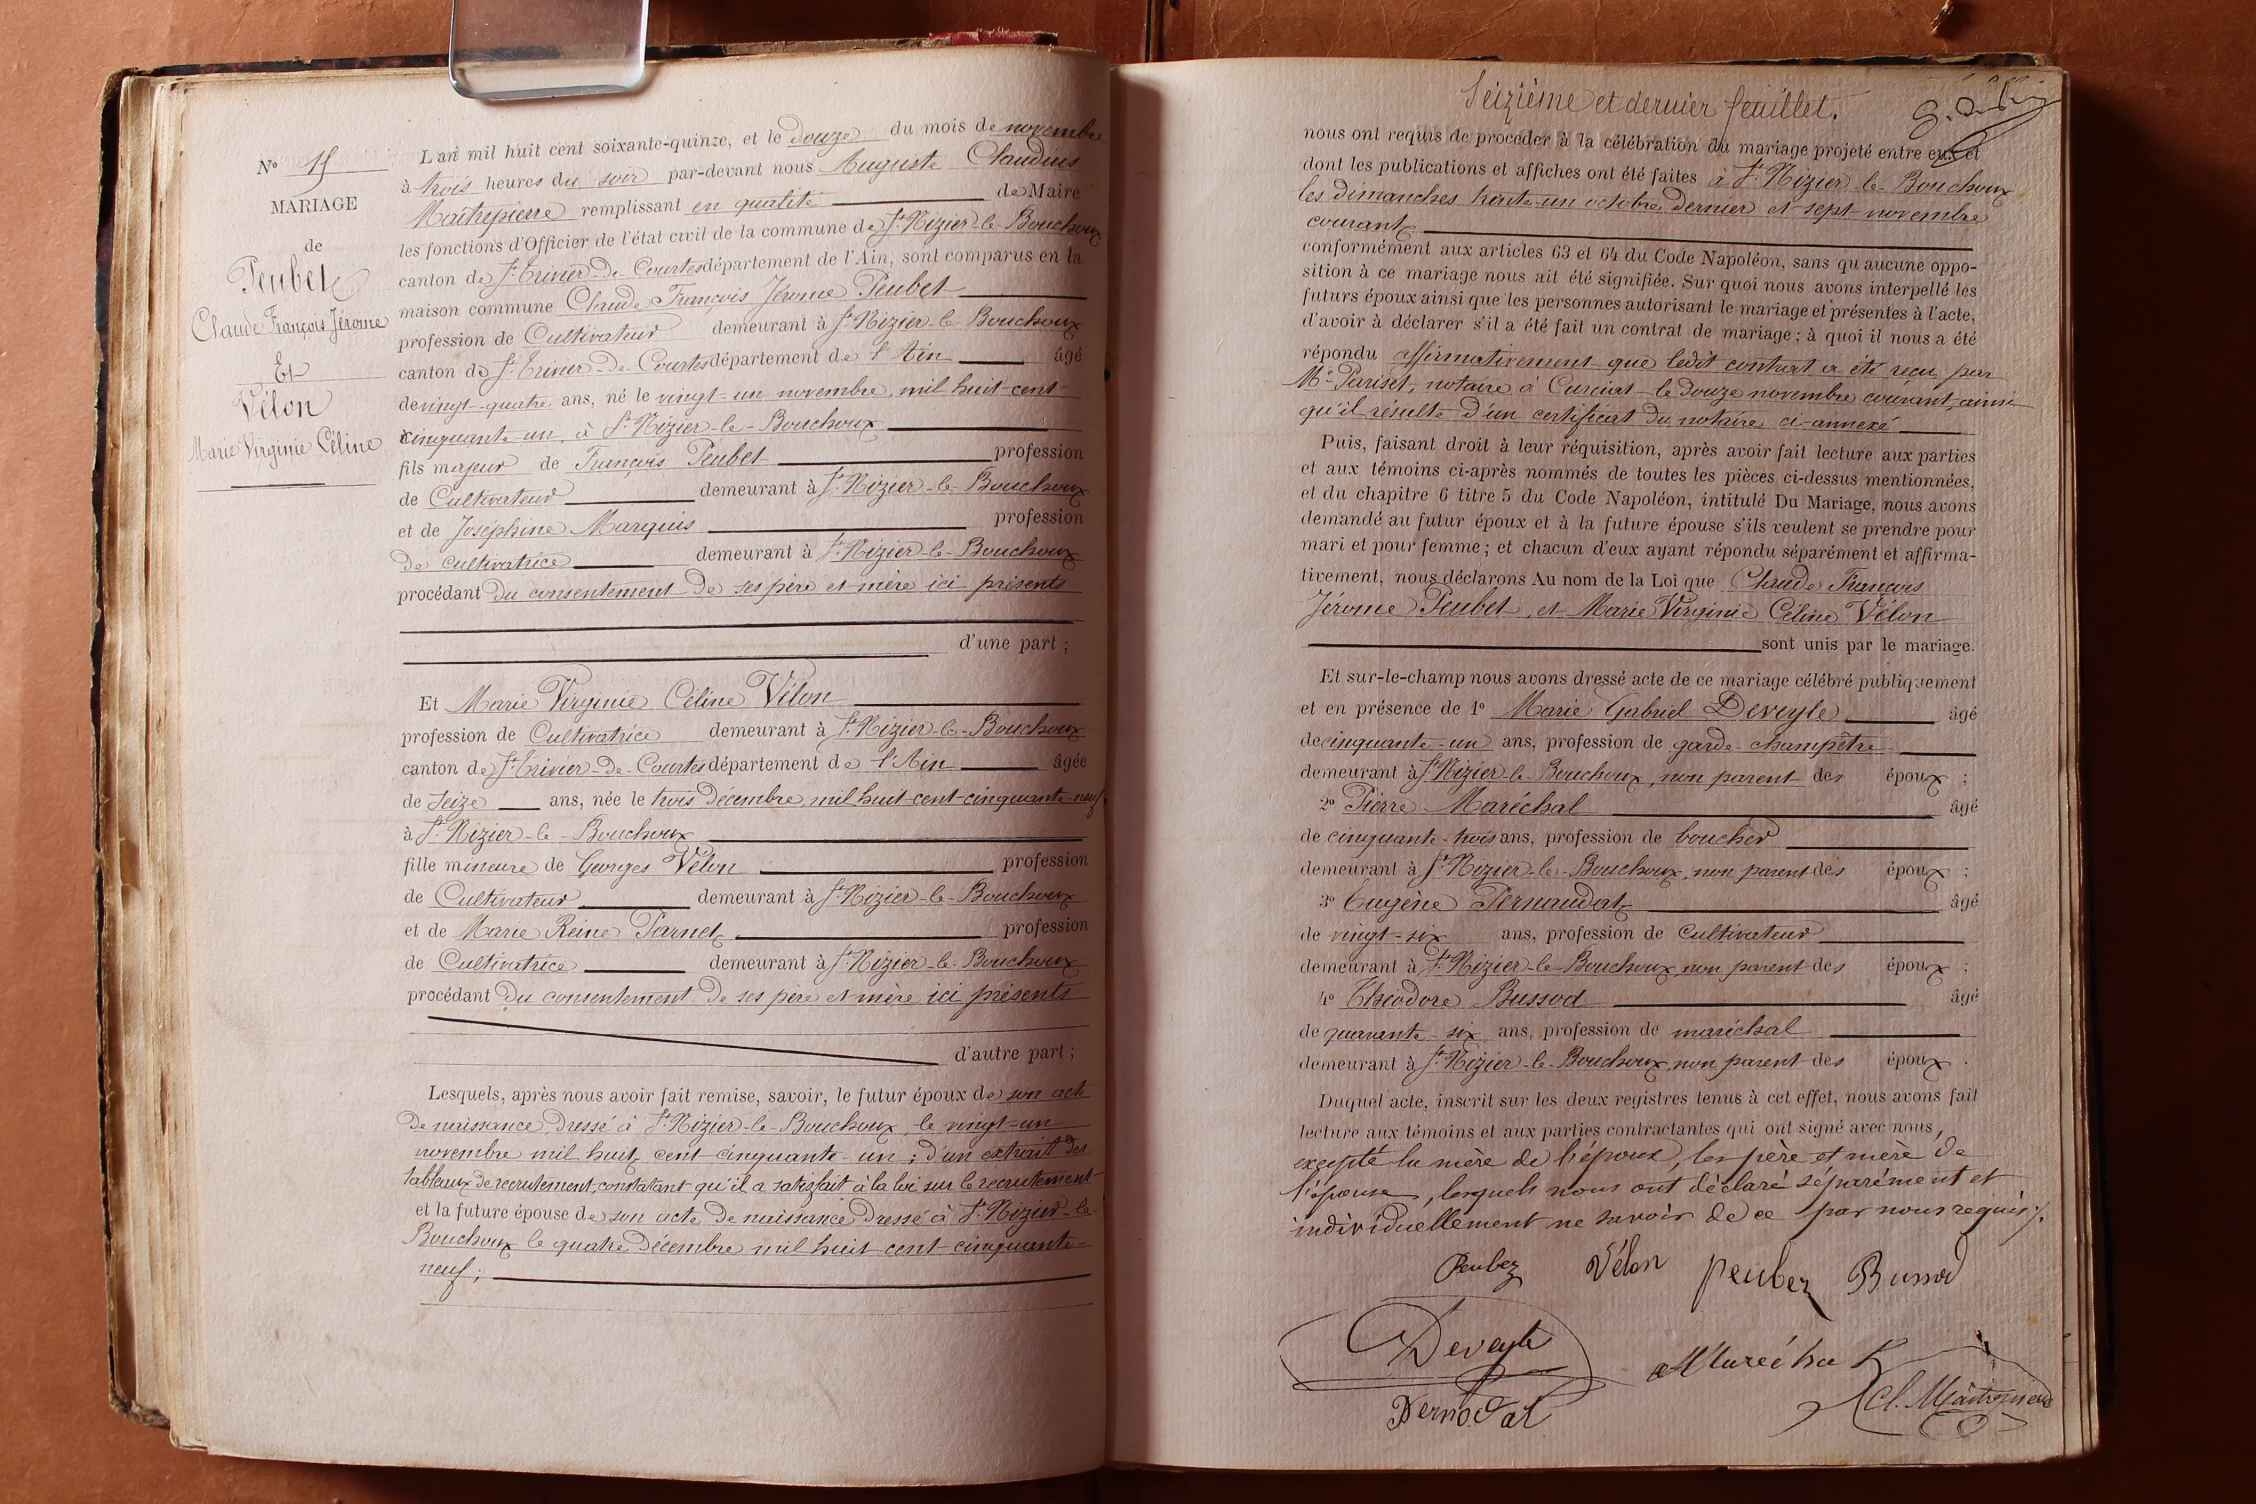 Nº 15
MARIAGE
de
Peubet
Claude François Jérome
Et
Vélon
Marie Virginie Céline
L'an mil huit cent soixante-quinze, et le douze du mois de novembre
à trois heures du soir par-devant nous Auguste Claudius
Maîtrepierre remplissant en qualité de Maire
les fonctions d'Officier de l'état civil de la commune de St Nizier-le-Bouchoux
canton de St Trivier-de-Courtes département de l'Ain, sont comparus en la
maison commune Claude François Jérome Peubet
profession de Cultivateur demeurant à St Nizier-le-Bouchoux
canton de St Trivier-de-Courtes département de l'Ain âgé
de vingt-quatre ans, né le vingt-un novembre mil huit cent
cinquante un, à St Nizier-le-Bouchoux
fils majeur de François Peubet profession
de Cultivateur demeurant à St Nizier-le-Bouchoux
et de Joséphine Marquis profession
de cultivatrice demeurant à St Nizier-le-Bouchoux
procédant du consentement de ses père et mère ici présents
d'une part ;
Et Marie Virginie Céline Vélon
profession de Cultivatrice demeurant à St Nizier-le-Bouchoux
canton de St Trivier-de-Courtes département de l'Ain âgée
de seize ans, née le trois Décembre mil huit cent cinquante-neuf
à St Nizier-le-Bouchoux
fille mineure de Georges Vélon profession
de Cultivateur demeurant à St Nizier-le-Bouchoux
et de Marie Reine Parnet profession
de Cultivatrice demeurant à St Nizier-le-Bouchoux
procédant du consentement de ses père et mère ici présents
d'autre part ;
Lesquels, après nous avoir fait remise, savoir, le futur époux de son acte
de naissance dressé à St Nizier-le-Bouchoux, le vingt-un
novembre mil huit cent cinquante-un ; d'un extrait des
tableaux de recrutement, constatant qu'il a satisfait à la loi sur le recrutement
et la future épouse de son acte de naissance dressé à St Nizier-le-
Bouchoux le quatre Décembre mil huit cent cinquante-
neuf ;
Seizième et dernier feuillet.
nous ont requis de procéder à la célébration du mariage projeté entre eux et
dont les publications et affiches ont été faites à St Nizier-le-Bouchoux
les dimanches trente-un octobre dernier et sept novembre
courant
conformément aux articles 63 et 64 du Code Napoléon, sans qu'aucune oppo-
sition à ce mariage nous ait été signifiée. Sur quoi nous avons interpellé les
futurs époux ainsi que les personnes autorisant le mariage et présentes à l'acte,
d'avoir à déclarer s'il a été fait un contrat de mariage ; à quoi il nous a été
répondu affirmativement que ledit contrat a été reçu par
Me Pariset, notaire à Curciat le douze novembre courant, ainsi
qu'il résulte d'un certificat du notaire ci-annexé
Puis, faisant droit à leur réquisition, après avoir fait lecture aux parties
et aux témoins ci-après nommés de toutes les pièces ci-dessus mentionnées,
et du chapitre 6 titre 5 du Code Napoléon, intitulé Du Mariage, nous avons
demandé au futur époux et à la future épouse s'ils veulent se prendre pour
mari et pour femme ; et chacun d'eux ayant répondu séparément et affirma-
tivement, nous déclarons Au nom de la Loi que Claude François
Jérome Peubet, et Marie Virginie Céline Vélon
sont unis par le mariage.
Et sur-le-champ nous avons dressé acte de ce mariage célébré publiquement
et en présence de 1º Marie Gabriel Deveyle âgé
de cinquante-un ans, profession de garde-champêtre
demeurant à St Nizier-le-Bouchoux, non parent des époux ;
2º Pierre Maréchal âgé
de cinquante-trois ans, profession de boucher
demeurant à St Nizier-le-Bouchoux, non parent des époux ;
3º Eugène Pernaudat âgé
de vingt-six ans, profession de Cultivateur
demeurant à St Nizier-le-Bouchoux, non parent des époux ;
4º Théodore Bussod âgé
de quarante-six ans, profession de maréchal
demeurant à St Nizier-le-Bouchoux, non parent des époux.
Duquel acte, inscrit sur les deux registres tenus à cet effet, nous avons fait
lecture aux témoins et aux parties contractantes qui ont signé avec nous,
excepté la mère de l'époux, les père et mère de
l'épouse, lesquels nous ont déclaré séparément et
individuellement ne savoir de ce par nous requis.
Peubez Vélon peubez Bussod
Deveyle Maréchal
Cl. Maitrepierre